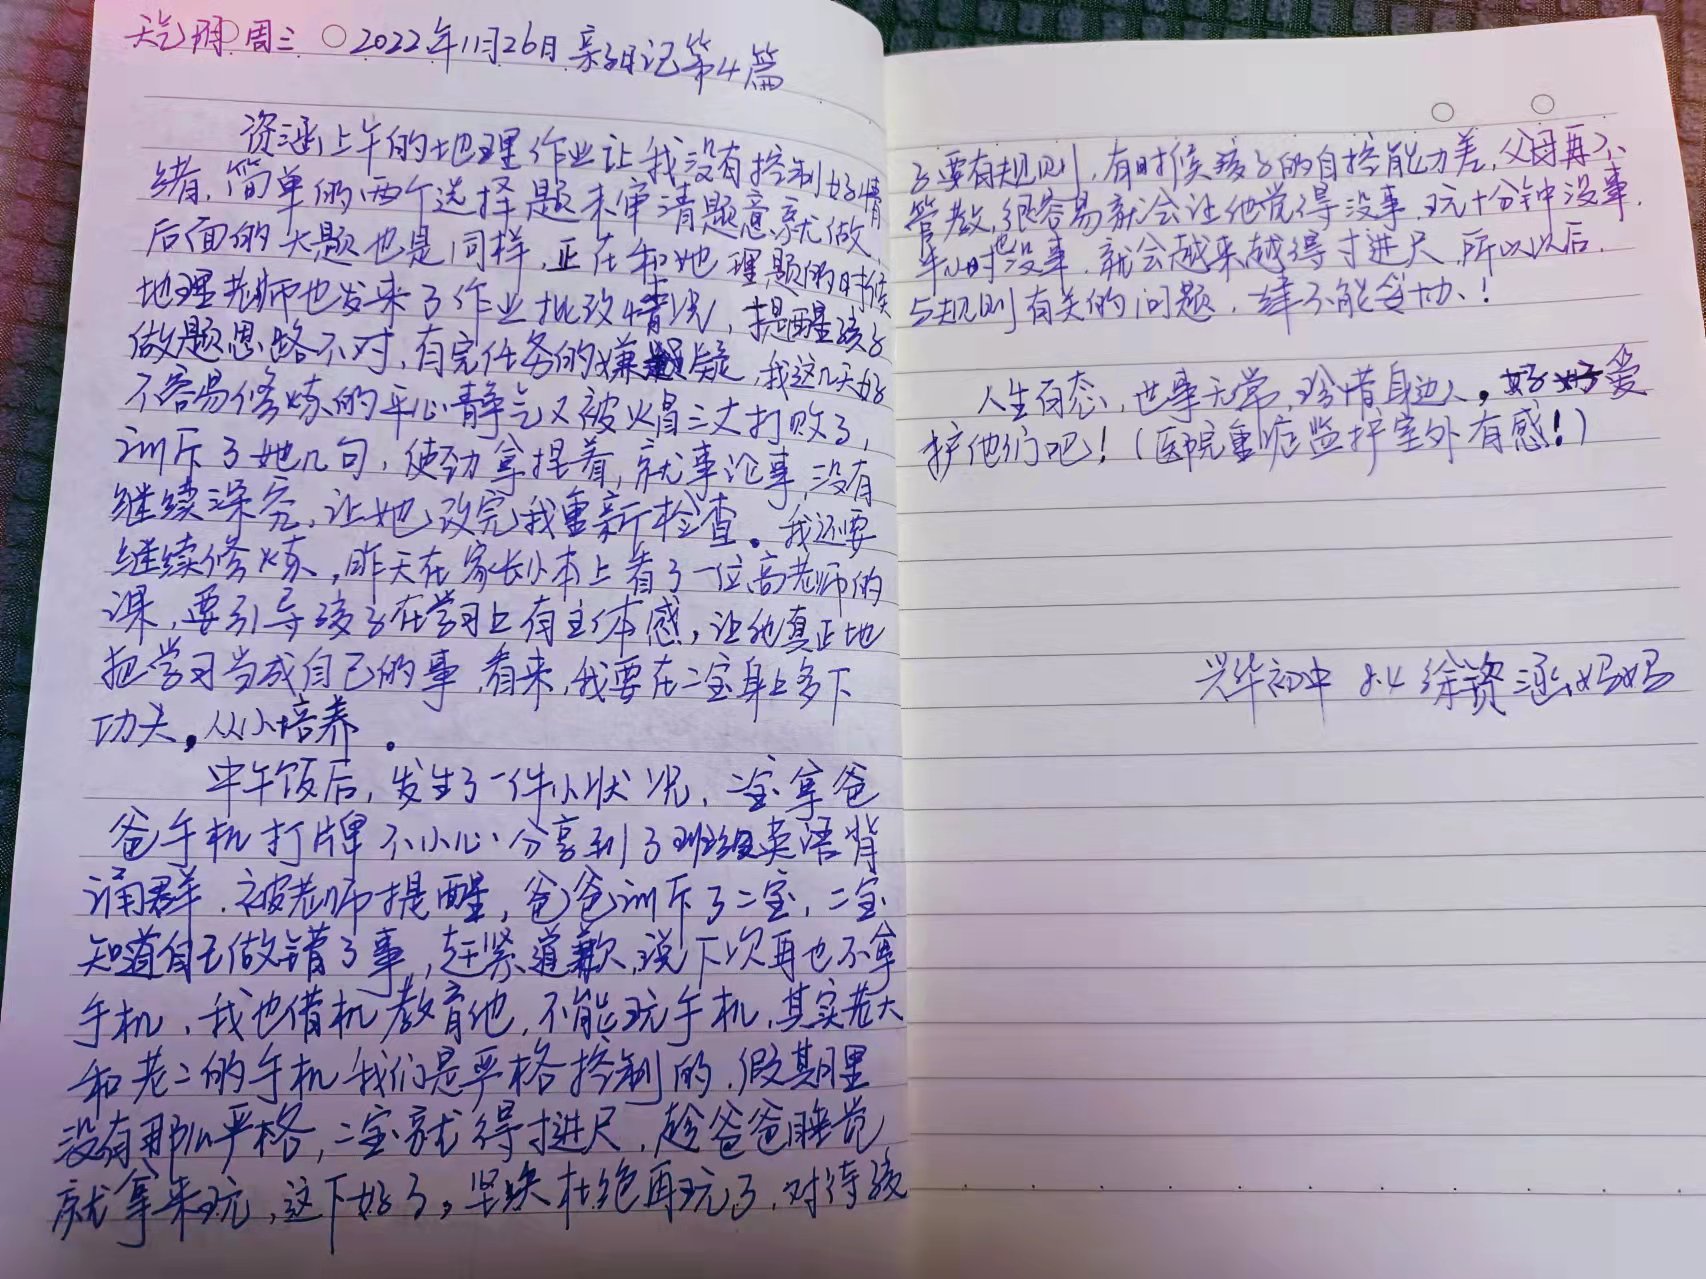 天气阴 周三 2022年11月26日亲子日记第4篇
资涵上午的地理作业让我没有控制好情
绪,简单的两个选择题未审清题意就做,
后面的大题也是同样,正在和她理题的时候
地理老师也发来了作业批改情况,提醒孩子
做题思路不对,有完任务的嫌疑,我这几天好
不容易修炼的平心静气又被火冒三丈打败了,
训斥了她几句,使劲拿捏着,就事论事,没有
继续深究,让她改完我重新检查。我还要
继续修炼,昨天在家长小本上看了一位高老师的
课,要引导孩子在学习上有主体感,让他真正地
把学习当成自己的事,看来,我要在二宝身上多下
功夫,从小培养。
中午饭后,发生了一件小状况,二宝拿爸
爸手机打牌不小心分享到了班级英语背
诵群,被老师提醒,爸爸训斥了二宝,二宝
知道自己做错了事,赶紧道歉,说下次再也不拿
手机,我也借机教育他,不能玩手机,其实老大
和老二的手机我们是严格控制的,假期里
没有那么严格,二宝就得寸进尺,趁爸爸睡觉
就拿来玩,这下好了,坚决杜绝再玩了,对待孩
子要有规则,有时候孩子的自控能力差,父母再不
管教,很容易就会让他觉得没事,玩十分钟没事,
半小时也没事,就会越来越得寸进尺,所以以后,
与规则有关的问题,一律不能妥协!
人生百态,世事无常,珍惜身边人,好好爱
护他们吧!(医院重症监护室外有感!)
兴华初中 8.4 徐资涵妈妈